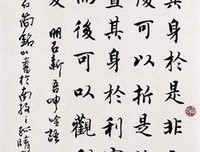 其身於是非
後可以折是
置其身於利
而後可以觀
明吕新吾呻吟語
書於南